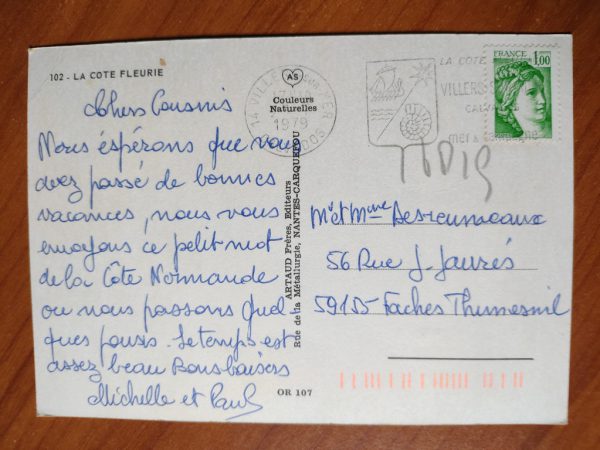 102 - LA COTE FLEURIE
chers Cousins
Nous éspérons que vous
avez passé de bonnes
vacances, nous vous
envoyons ce petit mot
de la Côte Normande
ou nous passons quel
ques jours. Le temps est
assez beau Bons baisers
Michelle et Paul
AS
Couleurs
Naturelles
ARTAUD Frères, Editeurs
Rue de la Métallurgie, NANTES-CARQUEFOU
OR 107
14 VILLERS SUR MER
1979
CALVADOS
LA COTE
VILLERS S
CALV
MER &
FRANCE
1,00
Mr et Mme
56 Rue J. Jaurés
59155 Faches Thumesnil